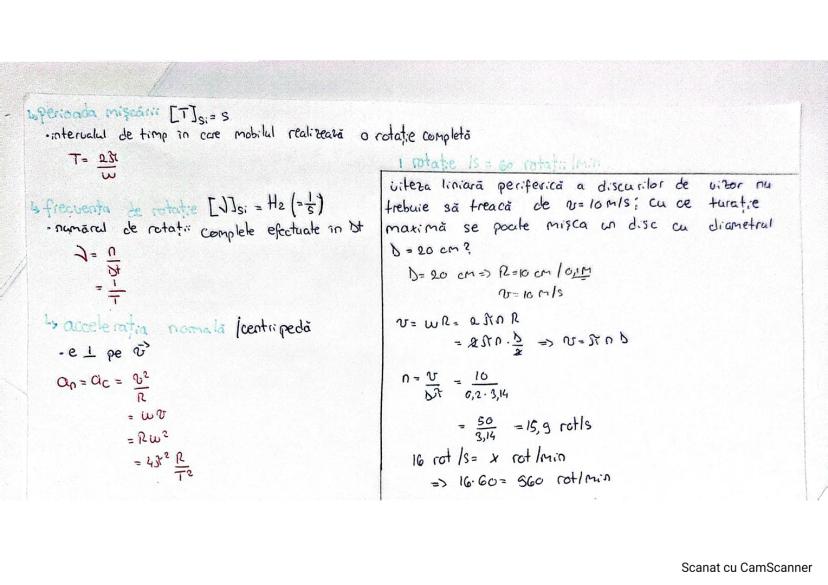 ↳ perioada mișcării [T]si = s
• intervalul de timp în care mobilul realizează o rotație completă
T = 2π/ω
↳ frecvența de rotație [ν]si = Hz (= 1/s)
• numărul de rotații complete efectuate în Δt
ν = n/Δt
= 1/T
↳ accelerația normală /centripedă
• e ⊥ pe v⃗
an = ac = v²/R
= ωv
= Rω²
= 4π² R/T²
1 rotație /s = 60 rotații/min.
viteza liniară periferică a discurilor de vizor nu
trebuie să treacă de v = 10 m/s; cu ce turație
maximă se poate mișca un disc cu diametrul
D = 20 cm?
D = 20 cm => R = 10 cm / 0,1M
v = 10 m/s
v = ωR = 2πn R
= 2πn · D/2 => v = πn D
n = v/Dπ = 10/0,2·3,14
= 50/3,14 = 15,9 rot/s
16 rot /s = x rot/min
=> 16·60 = 960 rot/min
Scanat cu CamScanner